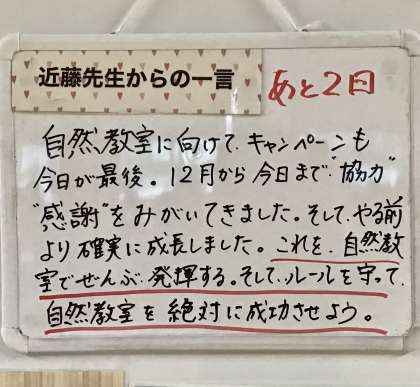 近藤先生からの一言
あと2日
自然教室に向けて、キャンペーンも
今日が最後。12月から今日まで"協力"
"感謝"をみがいてきました。そして、やる前
より確実に成長しました。これを、自然教
室でぜんぶ発揮する。そして、ルールを守って、
自然教室を絶対に成功させよう。